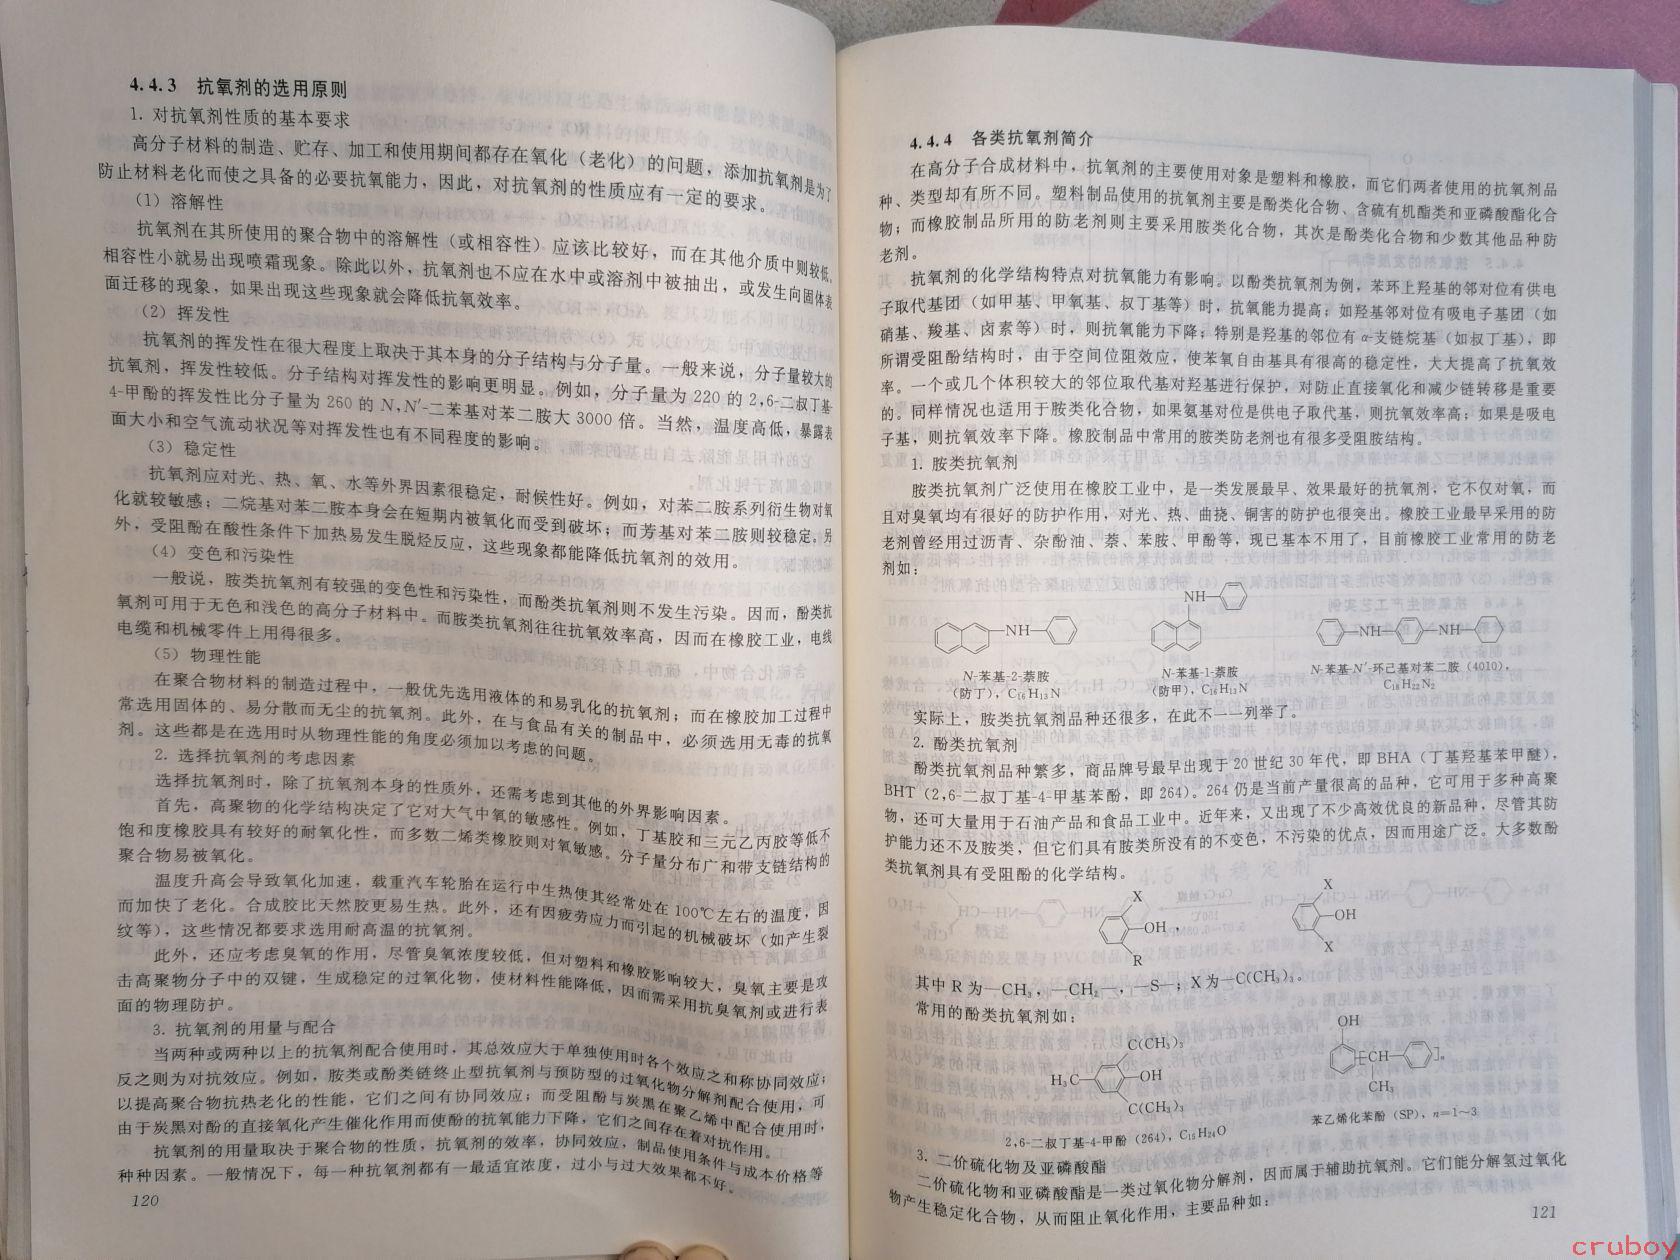 4.4.3 抗氧剂的选用原则
1. 对抗氧剂性质的基本要求
高分子材料的制造、贮存、加工和使用期间都存在氧化（老化）的问题，添加抗氧剂是为了
防止材料老化而使之具备的必要抗氧能力，因此，对抗氧剂的性质应有一定的要求。
（1）溶解性
抗氧剂在其所使用的聚合物中的溶解性（或相容性）应该比较好，而在其他介质中则较低。
相容性小就易出现喷霜现象。除此以外，抗氧剂也不应在水中或溶剂中被抽出，或发生向固体表
面迁移的现象，如果出现这些现象就会降低抗氧效率。
（2）挥发性
抗氧剂的挥发性在很大程度上取决于其本身的分子结构与分子量。一般来说，分子量较大的
抗氧剂，挥发性较低。分子结构对挥发性的影响更明显。例如，分子量为 220 的 2,6-二叔丁基-
4-甲酚的挥发性比分子量为 260 的 N,N′-二苯基对苯二胺大 3000 倍。当然，温度高低，暴露表
面大小和空气流动状况等对挥发性也有不同程度的影响。
（3）稳定性
抗氧剂应对光、热、氧、水等外界因素很稳定，耐候性好。例如，对苯二胺系列衍生物对氧
化就较敏感；二烷基对苯二胺本身会在短期内被氧化而受到破坏；而芳基对苯二胺则较稳定。另
外，受阻酚在酸性条件下加热易发生脱烃反应，这些现象都能降低抗氧剂的效用。
（4）变色和污染性
一般说，胺类抗氧剂有较强的变色性和污染性，而酚类抗氧剂则不发生污染。因而，酚类抗
氧剂可用于无色和浅色的高分子材料中。而胺类抗氧剂往往抗氧效率高，因而在橡胶工业，电线
电缆和机械零件上用得很多。
（5）物理性能
在聚合物材料的制造过程中，一般优先选用液体的和易乳化的抗氧剂；而在橡胶加工过程中
常选用固体的、易分散而无尘的抗氧剂。此外，在与食品有关的制品中，必须选用无毒的抗氧
剂。这些都是在选用时从物理性能的角度必须加以考虑的问题。
2. 选择抗氧剂的考虑因素
选择抗氧剂时，除了抗氧剂本身的性质外，还需考虑到其他的外界影响因素。
首先，高聚物的化学结构决定了它对大气中氧的敏感性。例如，丁基胶和三元乙丙胶等低不
饱和度橡胶具有较好的耐氧化性，而多数二烯类橡胶则对氧敏感。分子量分布广和带支链结构的
聚合物易被氧化。
温度升高会导致氧化加速，载重汽车轮胎在运行中生热使其经常处在 100℃左右的温度，因
而加快了老化。合成胶比天然胶更易生热。此外，还有因疲劳应力而引起的机械破坏（如产生裂
纹等），这些情况都要求选用耐高温的抗氧剂。
此外，还应考虑臭氧的作用，尽管臭氧浓度较低，但对塑料和橡胶影响较大，臭氧主要是攻
击高聚物分子中的双键，生成稳定的过氧化物，使材料性能降低，因而需采用抗臭氧剂或进行表
面的物理防护。
3. 抗氧剂的用量与配合
当两种或两种以上的抗氧剂配合使用时，其总效应大于单独使用时各个效应之和称协同效应；
反之则为对抗效应。例如，胺类或酚类链终止型抗氧剂与预防型的过氧化物分解剂配合使用，可
以提高聚合物抗热老化的性能，它们之间有协同效应；而受阻酚与炭黑在聚乙烯中配合使用时，
由于炭黑对酚的直接氧化产生催化作用而使酚的抗氧能力下降，它们之间存在着对抗作用。
抗氧剂的用量取决于聚合物的性质，抗氧剂的效率，协同效应，制品使用条件与成本价格等
种种因素。一般情况下，每一种抗氧剂都有一最适宜浓度，过小与过大效果都不好。
120
4.4.4 各类抗氧剂简介
在高分子合成材料中，抗氧剂的主要使用对象是塑料和橡胶，而它们两者使用的抗氧剂品
种、类型却有所不同。塑料制品使用的抗氧剂主要是酚类化合物、含硫有机酯类和亚磷酸酯化合
物；而橡胶制品所用的防老剂则主要采用胺类化合物，其次是酚类化合物和少数其他品种防
老剂。
抗氧剂的化学结构特点对抗氧能力有影响。以酚类抗氧剂为例，苯环上羟基的邻对位有供电
子取代基团（如甲基、甲氧基、叔丁基等）时，抗氧能力提高；如羟基邻对位有吸电子基团（如
硝基、羧基、卤素等）时，则抗氧能力下降；特别是羟基的邻位有 α-支链烷基（如叔丁基），即
所谓受阻酚结构时，由于空间位阻效应，使苯氧自由基具有很高的稳定性，大大提高了抗氧效
率。一个或几个体积较大的邻位取代基对羟基进行保护，对防止直接氧化和减少链转移是重要
的。同样情况也适用于胺类化合物，如果氨基对位是供电子取代基，则抗氧效率高；如果是吸电
子基，则抗氧效率下降。橡胶制品中常用的胺类防老剂也有很多受阻胺结构。
1. 胺类抗氧剂
胺类抗氧剂广泛使用在橡胶工业中，是一类发展最早、效果最好的抗氧剂，它不仅对氧，而
且对臭氧均有很好的防护作用，对光、热、曲挠、铜害的防护也很突出。橡胶工业最早采用的防
老剂曾经用过沥青、杂酚油、萘、苯胺、甲酚等，现已基本不用了，目前橡胶工业常用的防老
剂如：
NH
NH
NH NH
N-苯基-2-萘胺
（防丁），C₁₆H₁₃N
N-苯基-1-萘胺
（防甲），C₁₆H₁₃N
N-苯基-N′-环己基对苯二胺（4010），
C₁₈H₂₂N₂
实际上，胺类抗氧剂品种还很多，在此不一一列举了。
2. 酚类抗氧剂
酚类抗氧剂品种繁多，商品牌号最早出现于 20 世纪 30 年代，即 BHA（丁基羟基苯甲醚），
BHT（2,6-二叔丁基-4-甲基苯酚，即 264）。264 仍是当前产量很高的品种，它可用于多种高聚
物，还可大量用于石油产品和食品工业中。近年来，又出现了不少高效优良的新品种，尽管其防
护能力还不及胺类，但它们具有胺类所没有的不变色，不污染的优点，因而用途广泛。大多数酚
类抗氧剂具有受阻酚的化学结构。
X
OH，
R
X
OH
X
其中 R 为—CH₃，—CH₂—，—S—；X 为—C(CH₃)₃。
常用的酚类抗氧剂如：
C(CH₃)₃
H₃C OH
C(CH₃)₃
2,6-二叔丁基-4-甲酚（264），C₁₅H₂₄O
OH
[CH ]ₙ
CH₃
苯乙烯化苯酚（SP），n=1～3
3. 二价硫化物及亚磷酸酯
二价硫化物和亚磷酸酯是一类过氧化物分解剂，因而属于辅助抗氧剂。它们能分解氢过氧化
物产生稳定化合物，从而阻止氧化作用，主要品种如：
121
cruboy